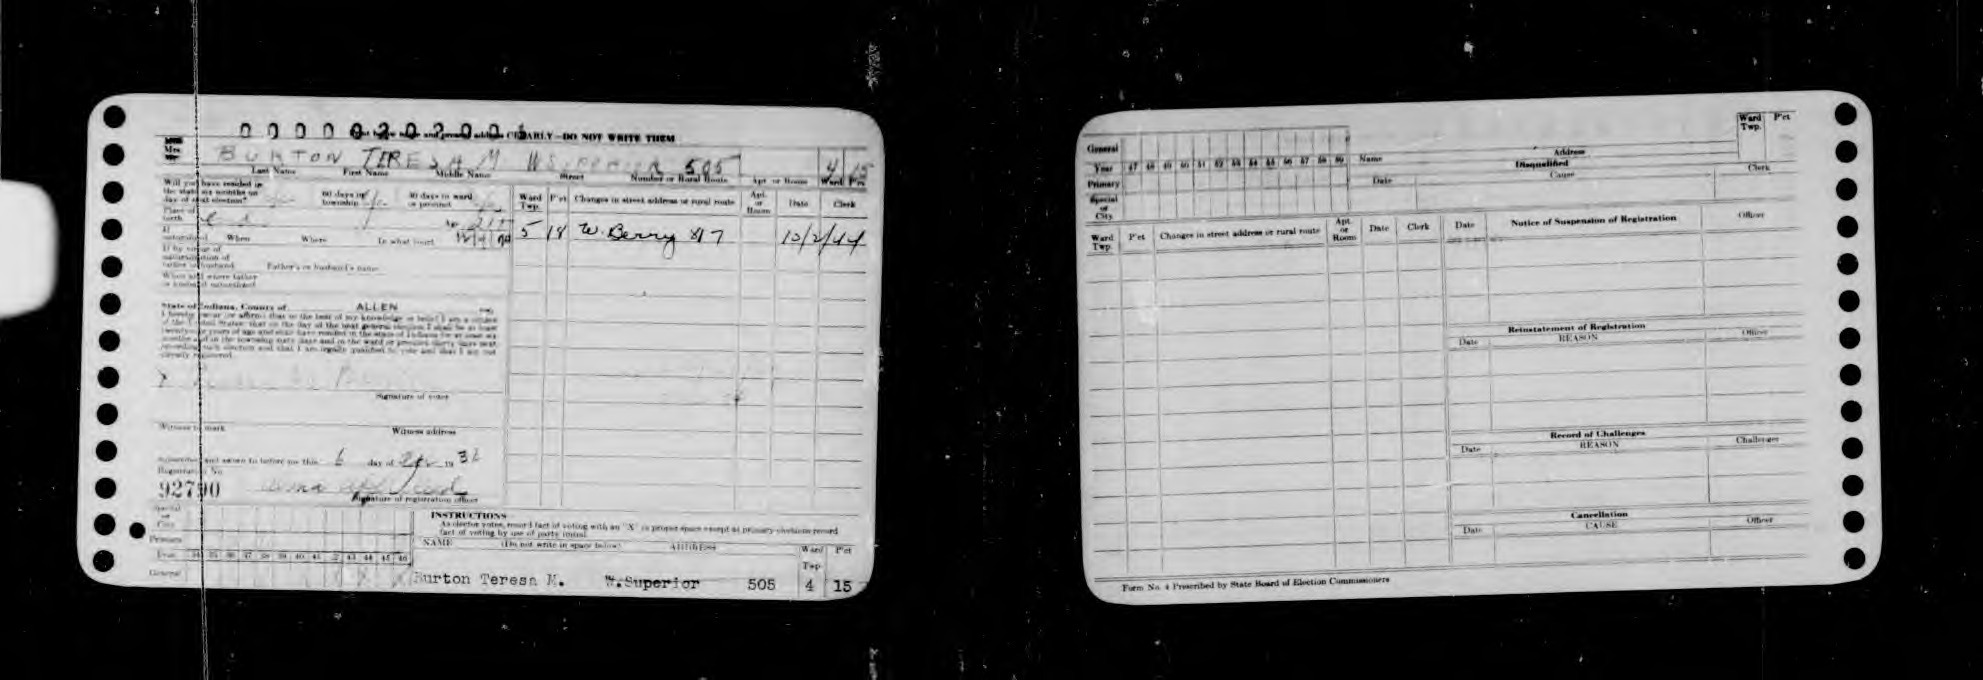 0 0 0 0 0 2 0 2 0 0
CLEARLY—DO NOT WRITE THEM
BURTON TERESA M W SUPERIOR 505 4 15
Last Name First Name Middle Name Street Number or Rural Route Apt or Room Ward Pct
Will you have resided in
the state six months on
day of next election?
60 days in
township
30 days in ward
or precinct
Place of
birth
Age 21+
If
naturalized When Where In what court
If by virtue of
naturalization of
father or husband Father's or husband's name
When and where father
or husband naturalized
State of Indiana, County of ALLEN
I hereby swear (or affirm) that to the best of my knowledge or belief I am a citizen
of the United States that on the day of the next general election I shall be at least
twenty-one years of age and shall have resided in the state of Indiana for at least six
months and in the township sixty days and in the ward or precinct thirty days next
preceding such election and that I am legally qualified to vote and that I am not
already registered
Signature of voter
Witness to mark Witness address
Subscribed and sworn to before me this 6 day of Apr 19 36
Registration No.
92790
Signature of registration officer
Ward Twp. P'ct Changes in street address or rural route Apt. or Room Date Clerk
5 18 W. Berry 817 10/2/44
Special
or
City
Primary
Year 34 35 36 37 38 39 40 41 42 43 44 45 46
General
INSTRUCTIONS
As elector votes, record fact of voting with an "X" in proper space except at primary elections record
fact of voting by use of party initial
NAME (Do not write in space below) ADDRESS Ward Twp P'ct
Burton Teresa M. W.Superior 505 4 15
General
Year 47 48 49 50 51 52 53 54 55 56 57 58 59
Primary
Special
or
City
Name Address Ward Twp. P'ct
Disqualified
Date Cause Clerk
Ward Twp. P'ct Changes in street address or rural route Apt. or Room Date Clerk
Date Notice of Suspension of Registration Officer
Reinstatement of Registration
Date REASON Officer
Record of Challenges
Date REASON Challenger
Cancellation
Date CAUSE Officer
Form No. 4 Prescribed by State Board of Election Commissioners